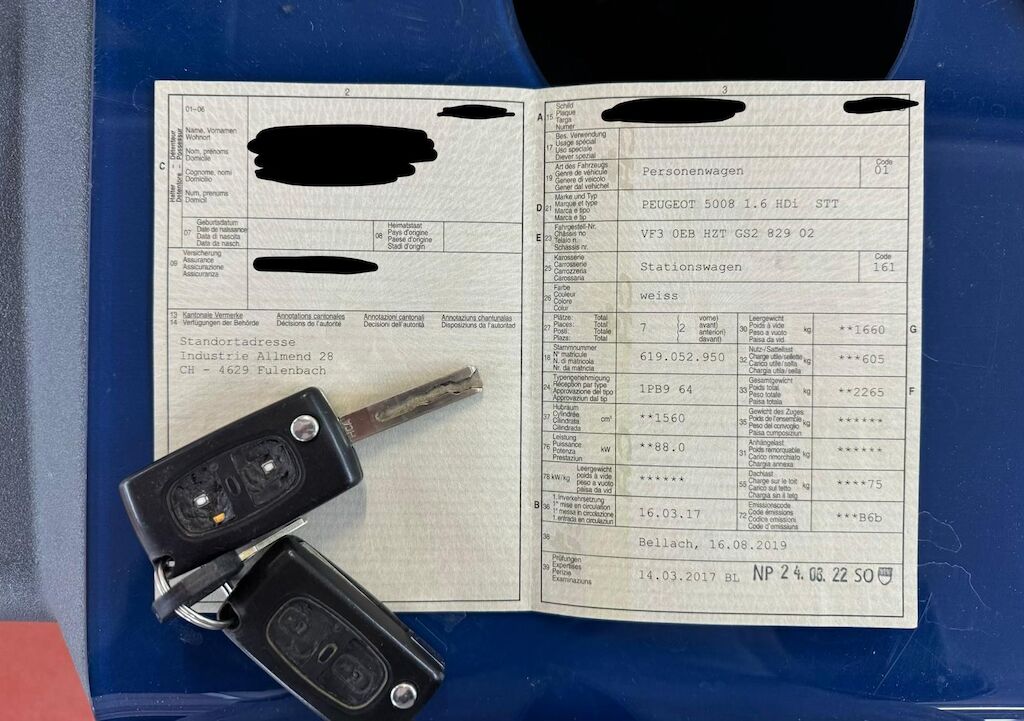 2
01–06
Halter – Détenteur
Detentore – Possessur
C
Name, Vornamen
Wohnort
Nom, prénoms
Domicile
Cognome, nomi
Domicilio
Num, prenums
Domicil
07
Geburtsdatum
Date de naissance
Data di nascita
Data da nasch.
08
Heimatstaat
Pays d'origine
Paese d'origine
Stadi d'origin
09
Versicherung
Assurance
Assicurazione
Assicuranza
13 Kantonale Vermerke Annotations cantonales Annotazioni cantonali Annotaziuns chantunalas
14 Verfügungen der Behörde Décisions de l'autorité Decisioni dell'autorità Disposiziuns da l'autoritad
Standortadresse
Industrie Allmend 28
CH - 4629 Fulenbach
3
A 15
Schild
Plaque
Targa
Numer
17
Bes. Verwendung
Usage spécial
Uso speciale
Diever spezial
19
Art des Fahrzeugs
Genre de véhicule
Genere di veicolo
Gener dal vehichel
Personenwagen
Code
01
D 21
Marke und Typ
Marque et type
Marca e tipo
Marca e tip
PEUGEOT 5008 1.6 HDi STT
E 23
Fahrgestell-Nr.
Châssis no
Telaio n.
Schassis nr.
VF3 0EB HZT GS2 829 02
25
Karosserie
Carrosserie
Carrozzeria
Carossaria
Stationswagen
Code
161
26
Farbe
Couleur
Colore
Colur
weiss
27
Plätze: Total
Places: Total
Posti: Totale
Plazs: Total
7 (2 vorne)
avant)
anteriori)
davant)
30
Leergewicht
Poids à vide
Peso a vuoto
Paisa da vid
kg
**1660
G
18
Stammnummer
N° matricule
N. di matricola
Nr. da matricla
619.052.950
32
Nutz-/Sattellast
Charge utile/sellette
Carico utile/sella
Chargia util/sella
kg
***605
24
Typengenehmigung
Réception par type
Approvazione del tipo
Approvaziun dal tip
1PB9 64
33
Gesamtgewicht
Poids total
Peso totale
Paisa totala
kg
**2265
F
37
Hubraum
Cylindrée
Cilindrata
Cilindrada
cm³
**1560
35
Gewicht des Zuges
Poids de l'ensemble
Peso del convoglio
Paisa cumposiziun
kg
******
76
Leistung
Puissance
Potenza
Prestaziun
kW
**88.0
31
Anhängelast
Poids remorquable
Carico rimorchiato
Chargia annexa
kg
******
78 kW/kg
Leergewicht
poids à vide
peso a vuoto
paisa da vid
******
55
Dachlast
Charge sur le toit
Carico sul tetto
Chargia sin il tetg
kg
****75
B 36
1. Inverkehrsetzung
1re mise en circulation
1a messa in circolazione
1. entrada en circulaziun
16.03.17
72
Emissionscode
Code émissions
Codice emissioni
Code d'emissiuns
***B6b
38
Bellach, 16.08.2019
39
Prüfungen
Expertises
Perizie
Examinaziuns
14.03.2017 BL NP 24. 03. 22 SO